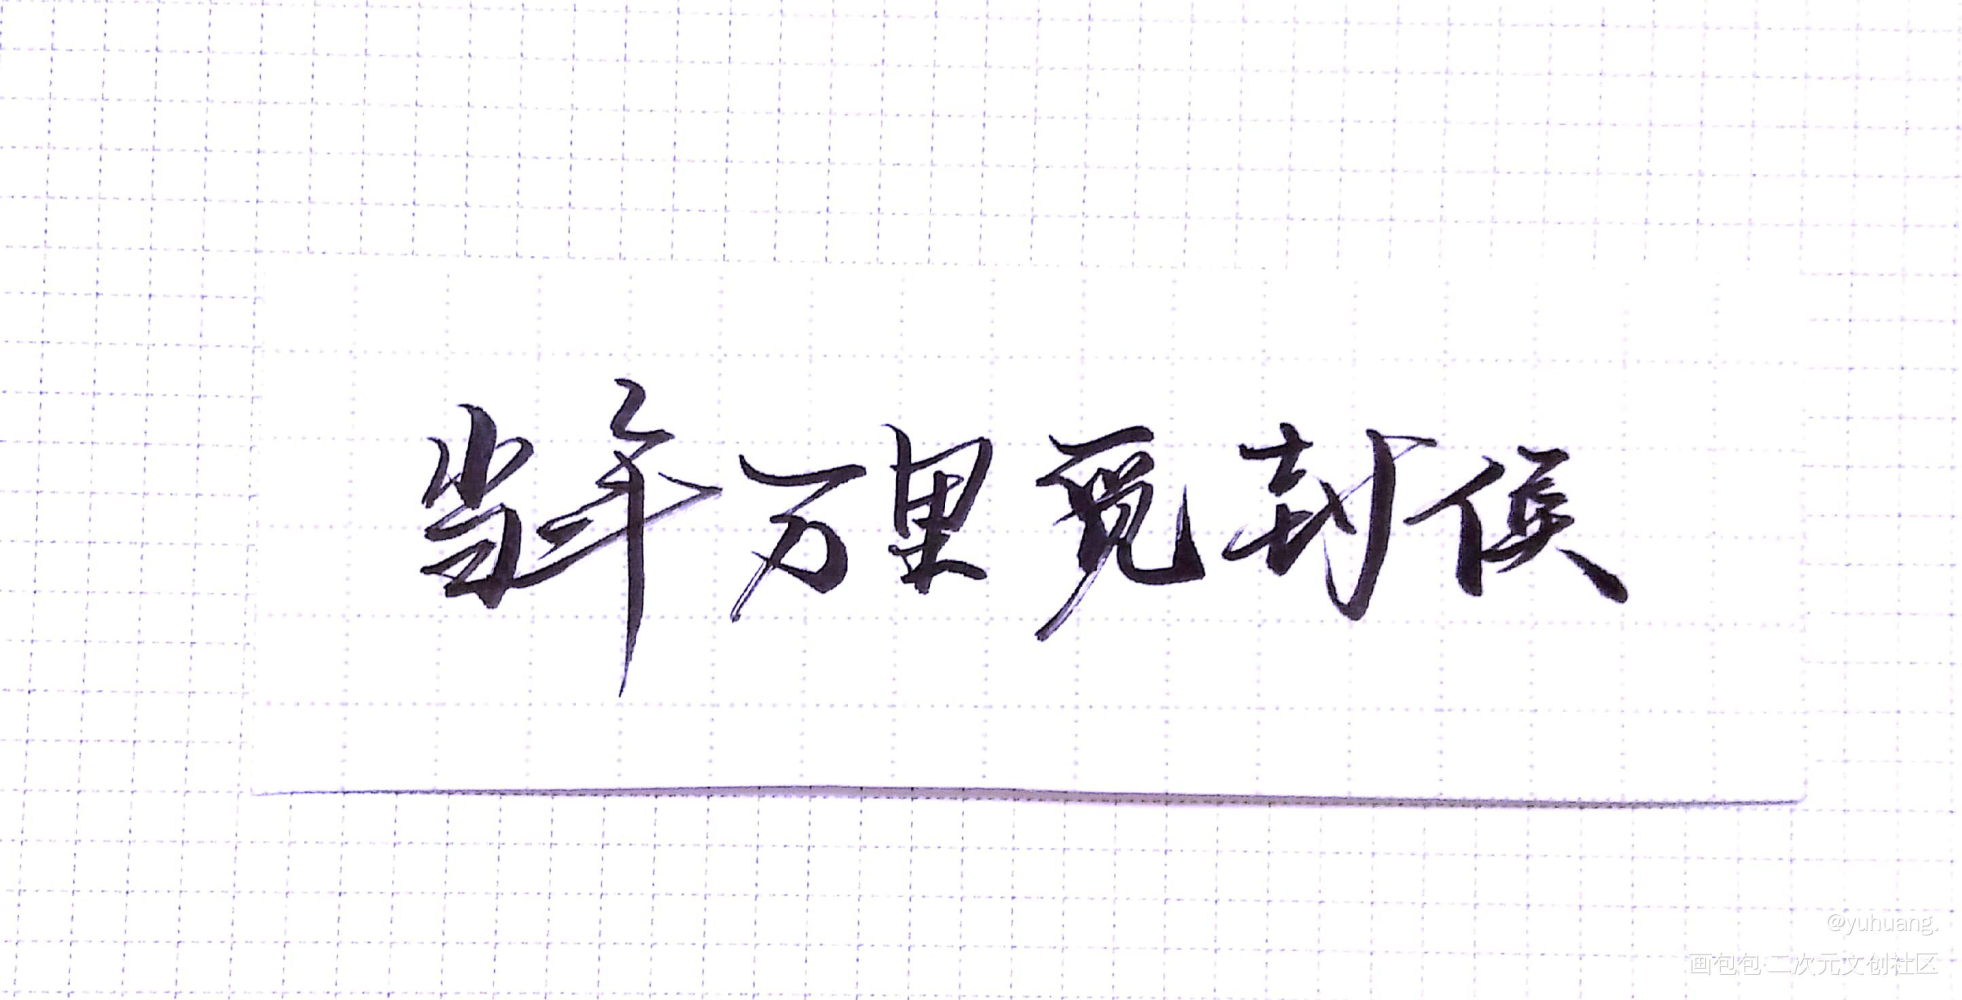 当年万里觅封侯
@yuhuang.
画包包·二次元文创社区